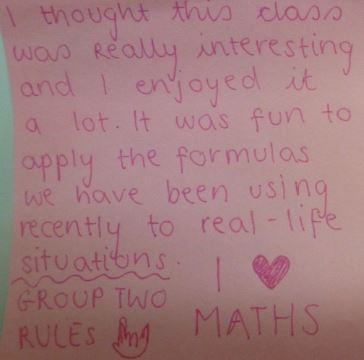 I thought this class
was really interesting
and I enjoyed it
a lot. It was fun to
apply the formulas
we have been using
recently to real-life
situations.
I ♥
MATHS
GROUP TWO
RULES